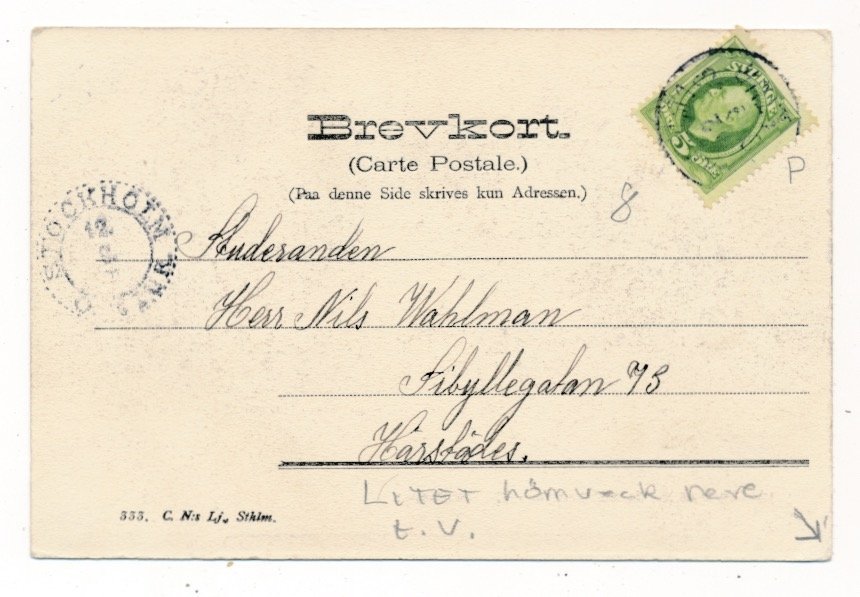 Brevkort.
(Carte Postale.)
(Paa denne Side skrives kun Adressen.)
8
P
5
STOCKHOLM
12
Studeranden
Herr Nils Wahlman
Sibyllegatan 73
Härstädes.
LITET hörnveck nere
t.v.
333. C. N:s Lj., Sthlm.